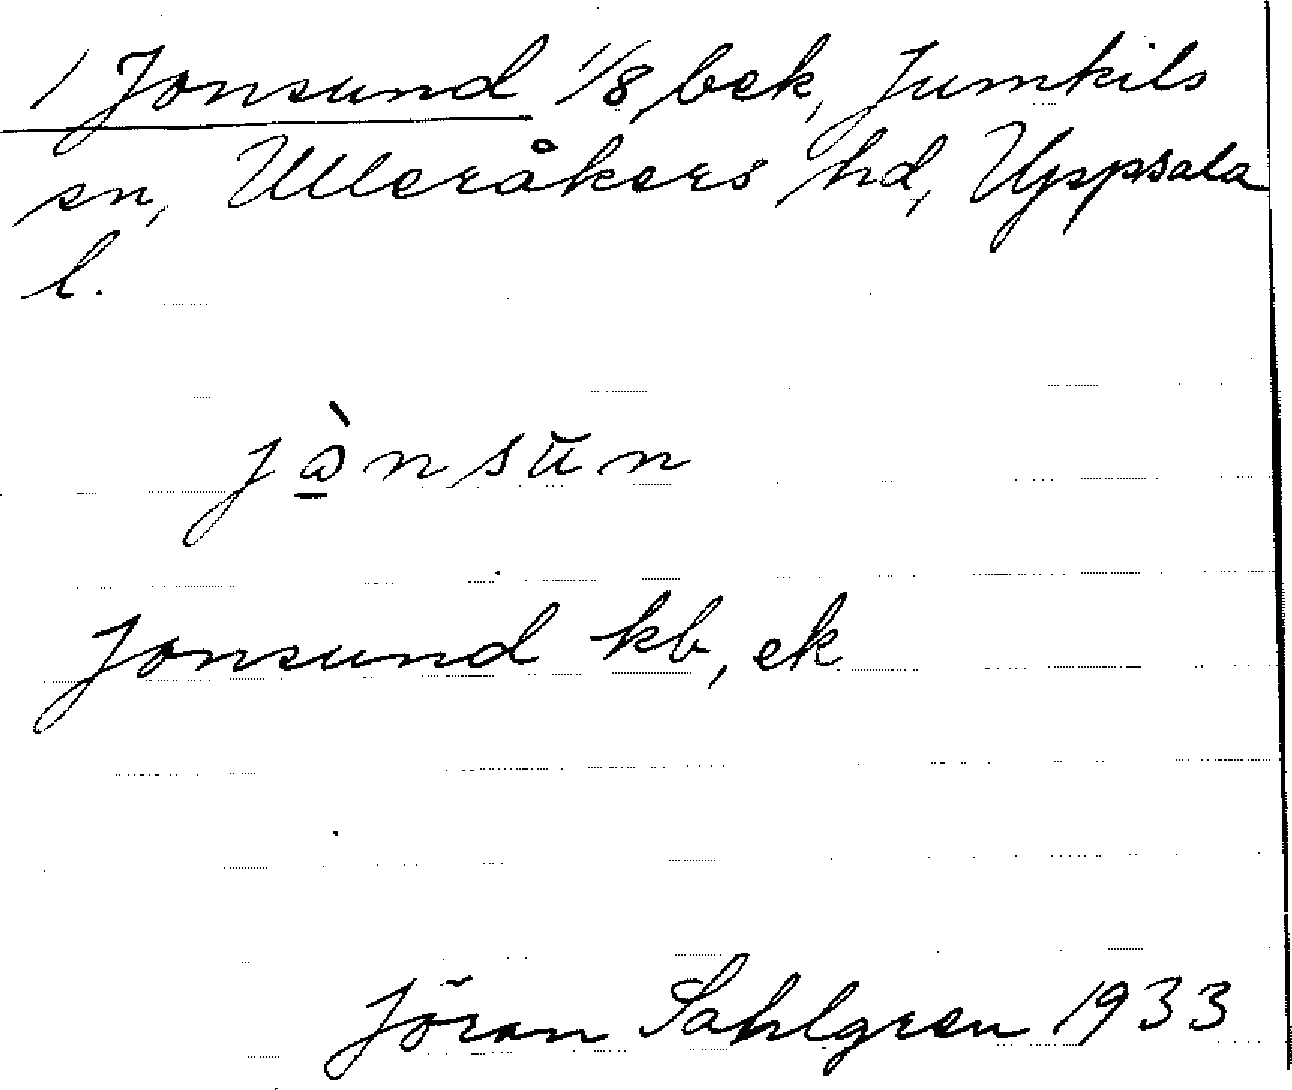 1 Jonsund 1/8 bek, Jumkils
sn, Ulleråkers hd, Uppsala
l.
Jonsund kb, ek
Jöran Sahlgren 1933